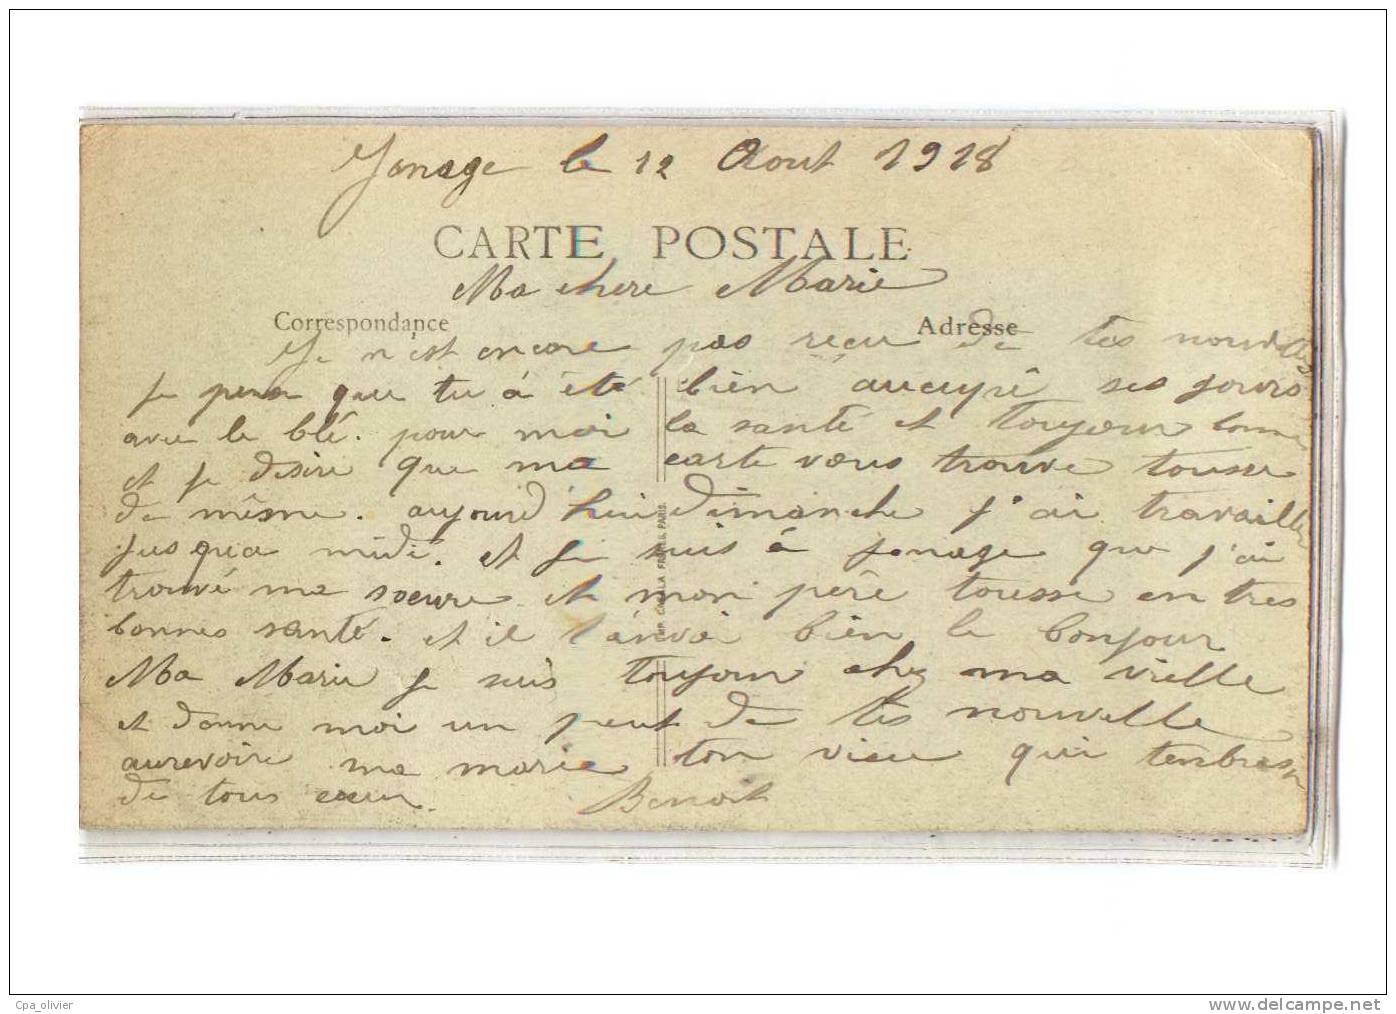 Jonage le 12 Aout 1918
CARTE POSTALE
Ma chere Marie
Correspondance
Adresse
Je n'est encore pas reçu de tes nouvelles
je pense que tu á été bien aucupé ses jours
avec le blé. pour moi la santé et toujour bonne
et je desire que ma carte vous trouve tousse
de même. aujourd'hui dimanche j'ai travailler
jusqua midi. et je suis á jonage que j'ai
trouvé ma soeure et mon père tousse en tres
bonnes santé. et il t'anvoi bien le bonjour
Ma Marie je suis toujour chez ma vielle
et donne moi un peut de tes nouvelle
aurevoire ma marie ton vieu qui tenbrasse
de tous coeur. Benoit
FRÈRES, PARIS.
Cpa_olivier
www.delcampe.net